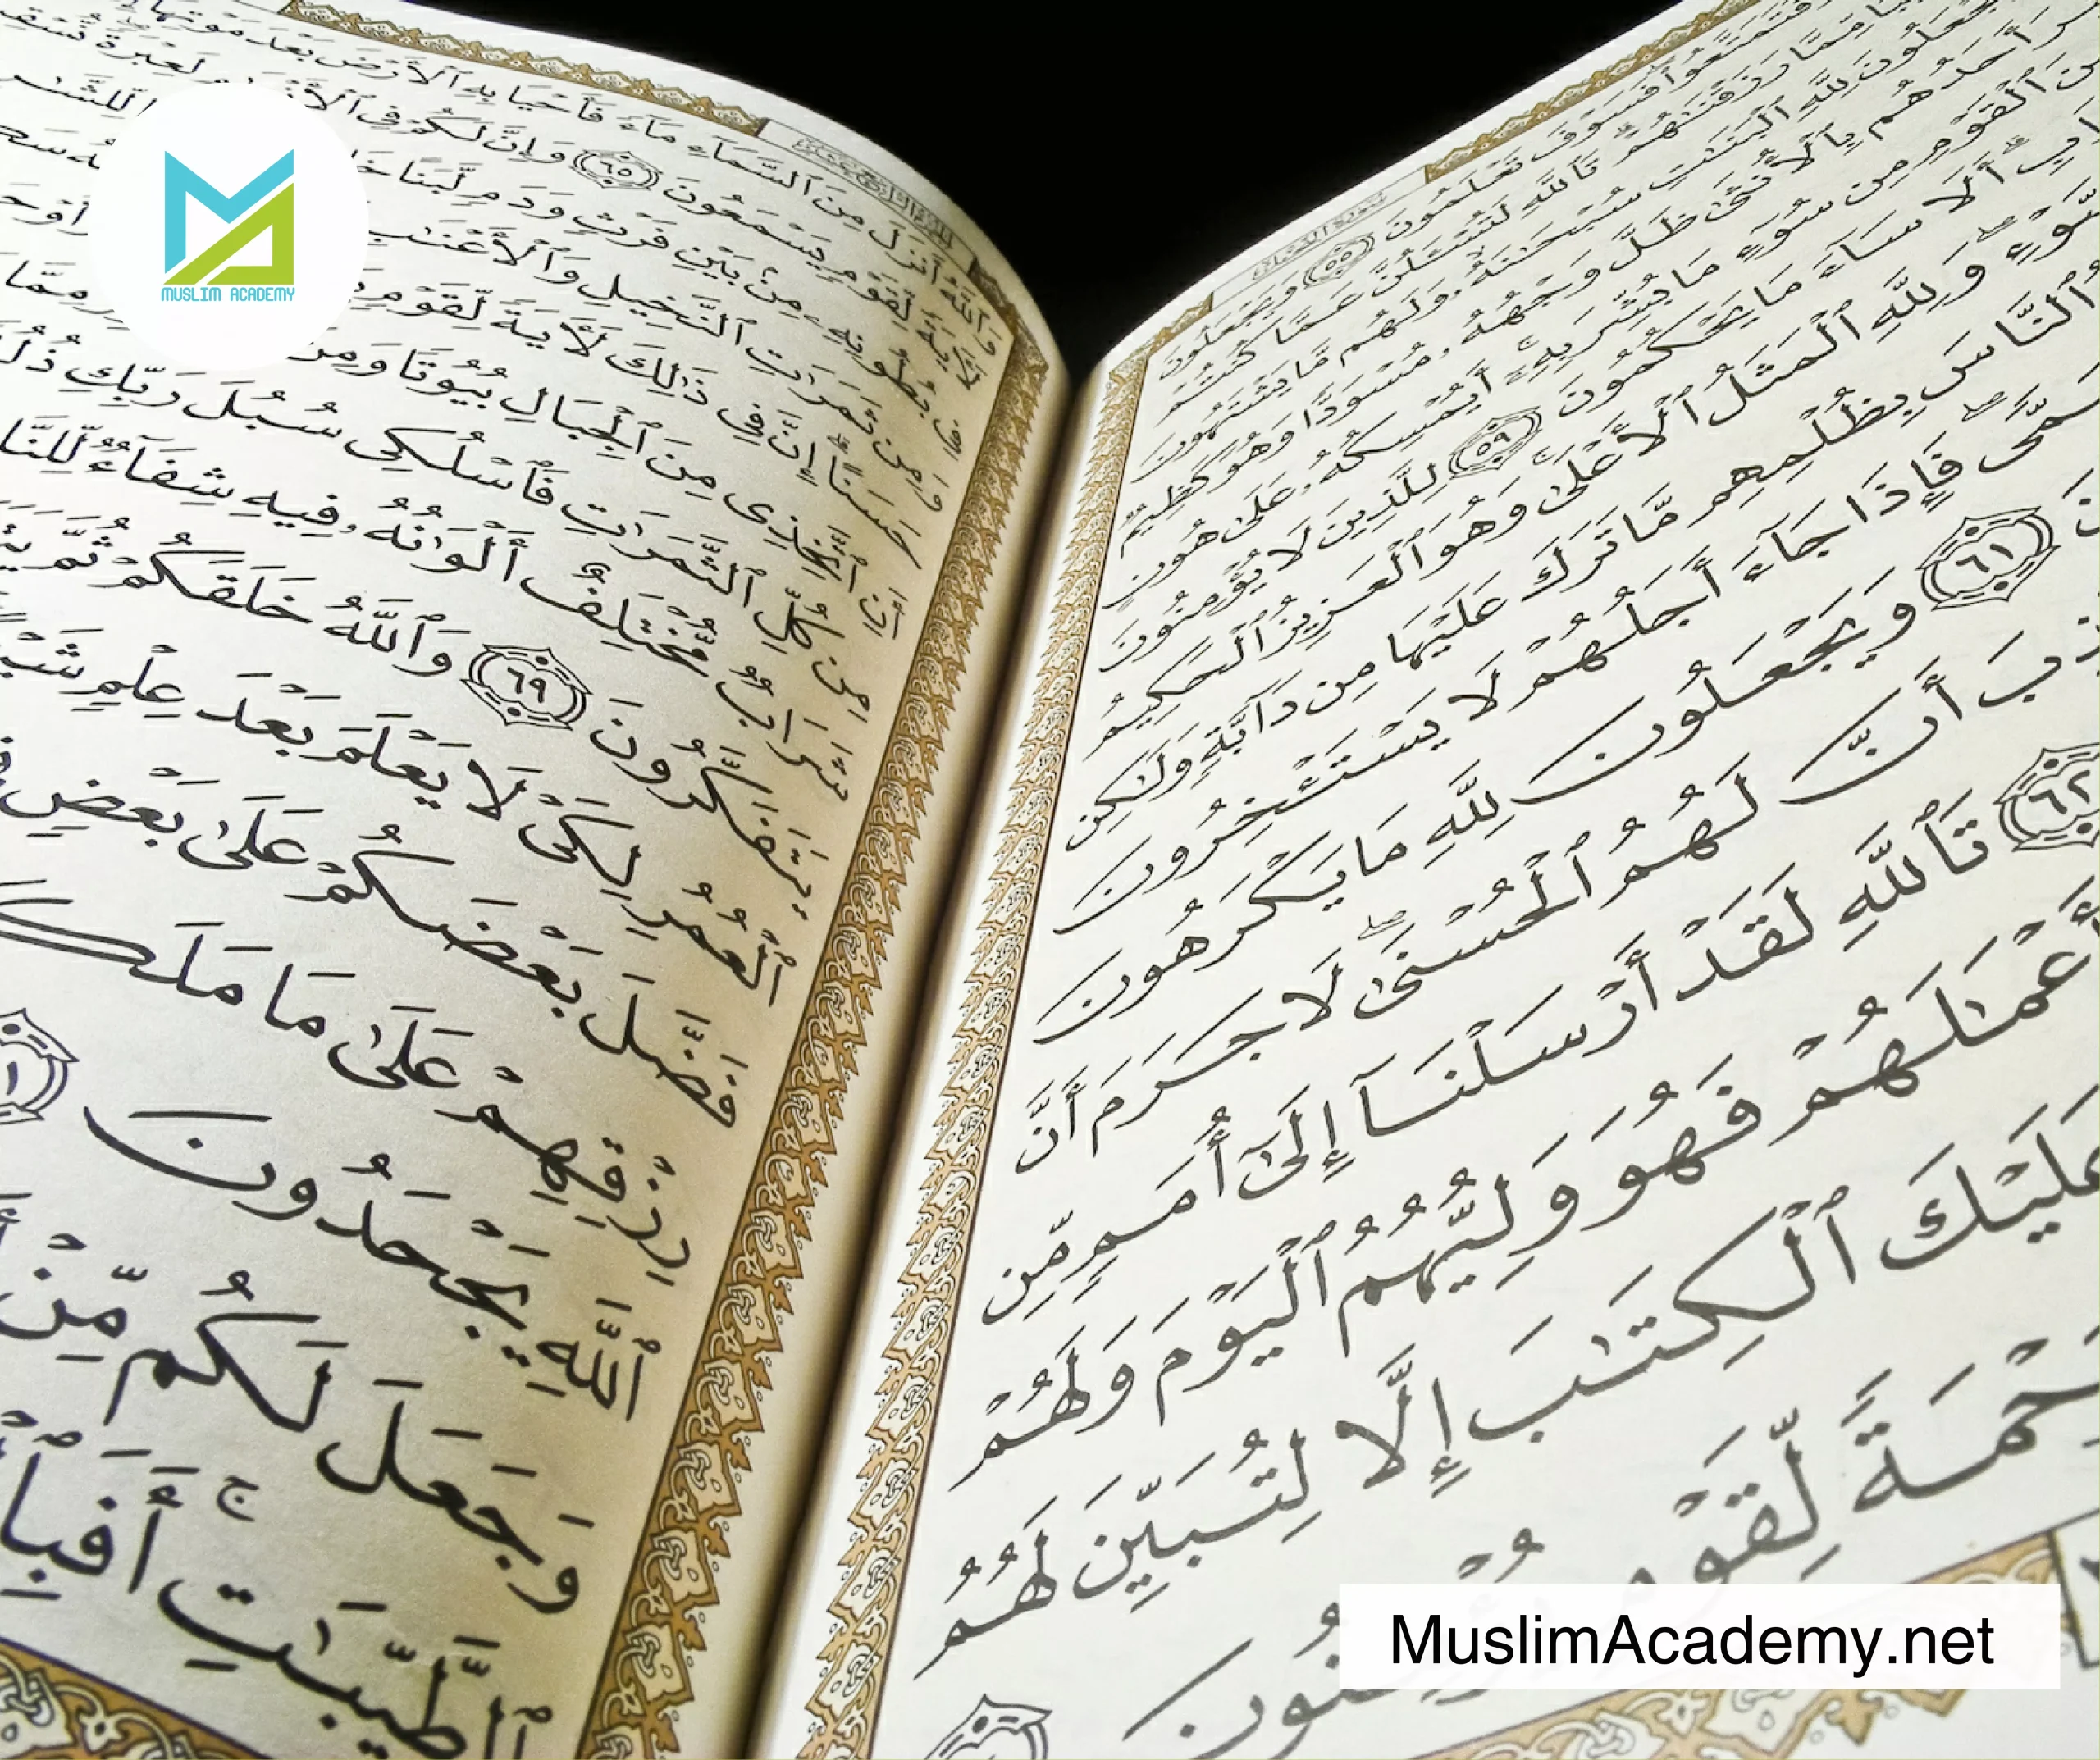 MUSLIM ACADEMY
فَتَمَتَّعُوا۟ فَسَوْفَ تَعْلَمُونَ ٥٥ وَيَجْعَلُونَ
مِّمَّا رَزَقْنَـٰهُمْ تَٱللَّهِ لَتُسْـَٔلُنَّ عَمَّا كُنتُمْ
وَيَجْعَلُونَ لِلَّهِ ٱلْبَنَـٰتِ سُبْحَـٰنَهُۥ وَلَهُم مَّا يَشْتَهُونَ
أَحَدُهُم بِٱلْأُنثَىٰ ظَلَّ وَجْهُهُۥ مُسْوَدًّا وَهُوَ كَظِيمٌ
مِنَ ٱلْقَوْمِ مِن سُوٓءِ مَا بُشِّرَ بِهِۦٓ أَيُمْسِكُهُۥ عَلَىٰ هُونٍ
أَلَا سَآءَ مَا يَحْكُمُونَ ٥٩ لِلَّذِينَ لَا يُؤْمِنُونَ
ٱلسَّوْءِ ۖ وَلِلَّهِ ٱلْمَثَلُ ٱلْأَعْلَىٰ ۚ وَهُوَ ٱلْعَزِيزُ ٱلْحَكِيمُ
ٱلنَّاسَ بِظُلْمِهِم مَّا تَرَكَ عَلَيْهَا مِن دَآبَّةٍ وَلَـٰكِن
مُّسَمًّى ۖ فَإِذَا جَآءَ أَجَلُهُمْ لَا يَسْتَـْٔخِرُونَ
٦١ وَيَجْعَلُونَ لِلَّهِ مَا يَكْرَهُونَ
أَنَّ لَهُمُ ٱلْحُسْنَىٰ ۖ لَا جَرَمَ أَنَّ
٦٢ تَٱللَّهِ لَقَدْ أَرْسَلْنَآ إِلَىٰٓ أُمَمٍ مِّن
أَعْمَـٰلَهُمْ فَهُوَ وَلِيُّهُمُ ٱلْيَوْمَ وَلَهُمْ
عَلَيْكَ ٱلْكِتَـٰبَ إِلَّا لِتُبَيِّنَ لَهُمُ
رَحْمَةً لِّقَوْمٍ
وَٱللَّهُ أَنزَلَ مِنَ ٱلسَّمَآءِ مَآءً فَأَحْيَا بِهِ ٱلْأَرْضَ بَعْدَ مَوْتِهَآ
لَـَٔايَةً لِّقَوْمٍ يَسْمَعُونَ ٦٥ وَإِنَّ لَكُمْ فِى ٱلْأَنْعَـٰمِ لَعِبْرَةً
بُطُونِهِۦ مِنۢ بَيْنِ فَرْثٍ وَدَمٍ لَّبَنًا
وَمِن ثَمَرَٰتِ ٱلنَّخِيلِ وَٱلْأَعْنَـٰبِ
حَسَنًا ۗ إِنَّ فِى ذَٰلِكَ لَـَٔايَةً لِّقَوْمٍ
أَنِ ٱتَّخِذِى مِنَ ٱلْجِبَالِ بُيُوتًا وَمِنَ
مِن كُلِّ ٱلثَّمَرَٰتِ فَٱسْلُكِى سُبُلَ رَبِّكِ
شَرَابٌ مُّخْتَلِفٌ أَلْوَٰنُهُۥ فِيهِ شِفَآءٌ لِّلنَّا
يَتَفَكَّرُونَ ٦٩ وَٱللَّهُ خَلَقَكُمْ ثُمَّ
ٱلْعُمُرِ لِكَىْ لَا يَعْلَمَ بَعْدَ عِلْمٍ
فَضَّلَ بَعْضَكُمْ عَلَىٰ بَعْضٍ
رِزْقِهِمْ عَلَىٰ مَا مَلَكَ
ٱللَّهِ يَجْحَدُونَ
وَجَعَلَ لَكُم مِّنْ
ٱلطَّيِّبَـٰتِ ۚ أَفَبِٱ
MuslimAcademy.net